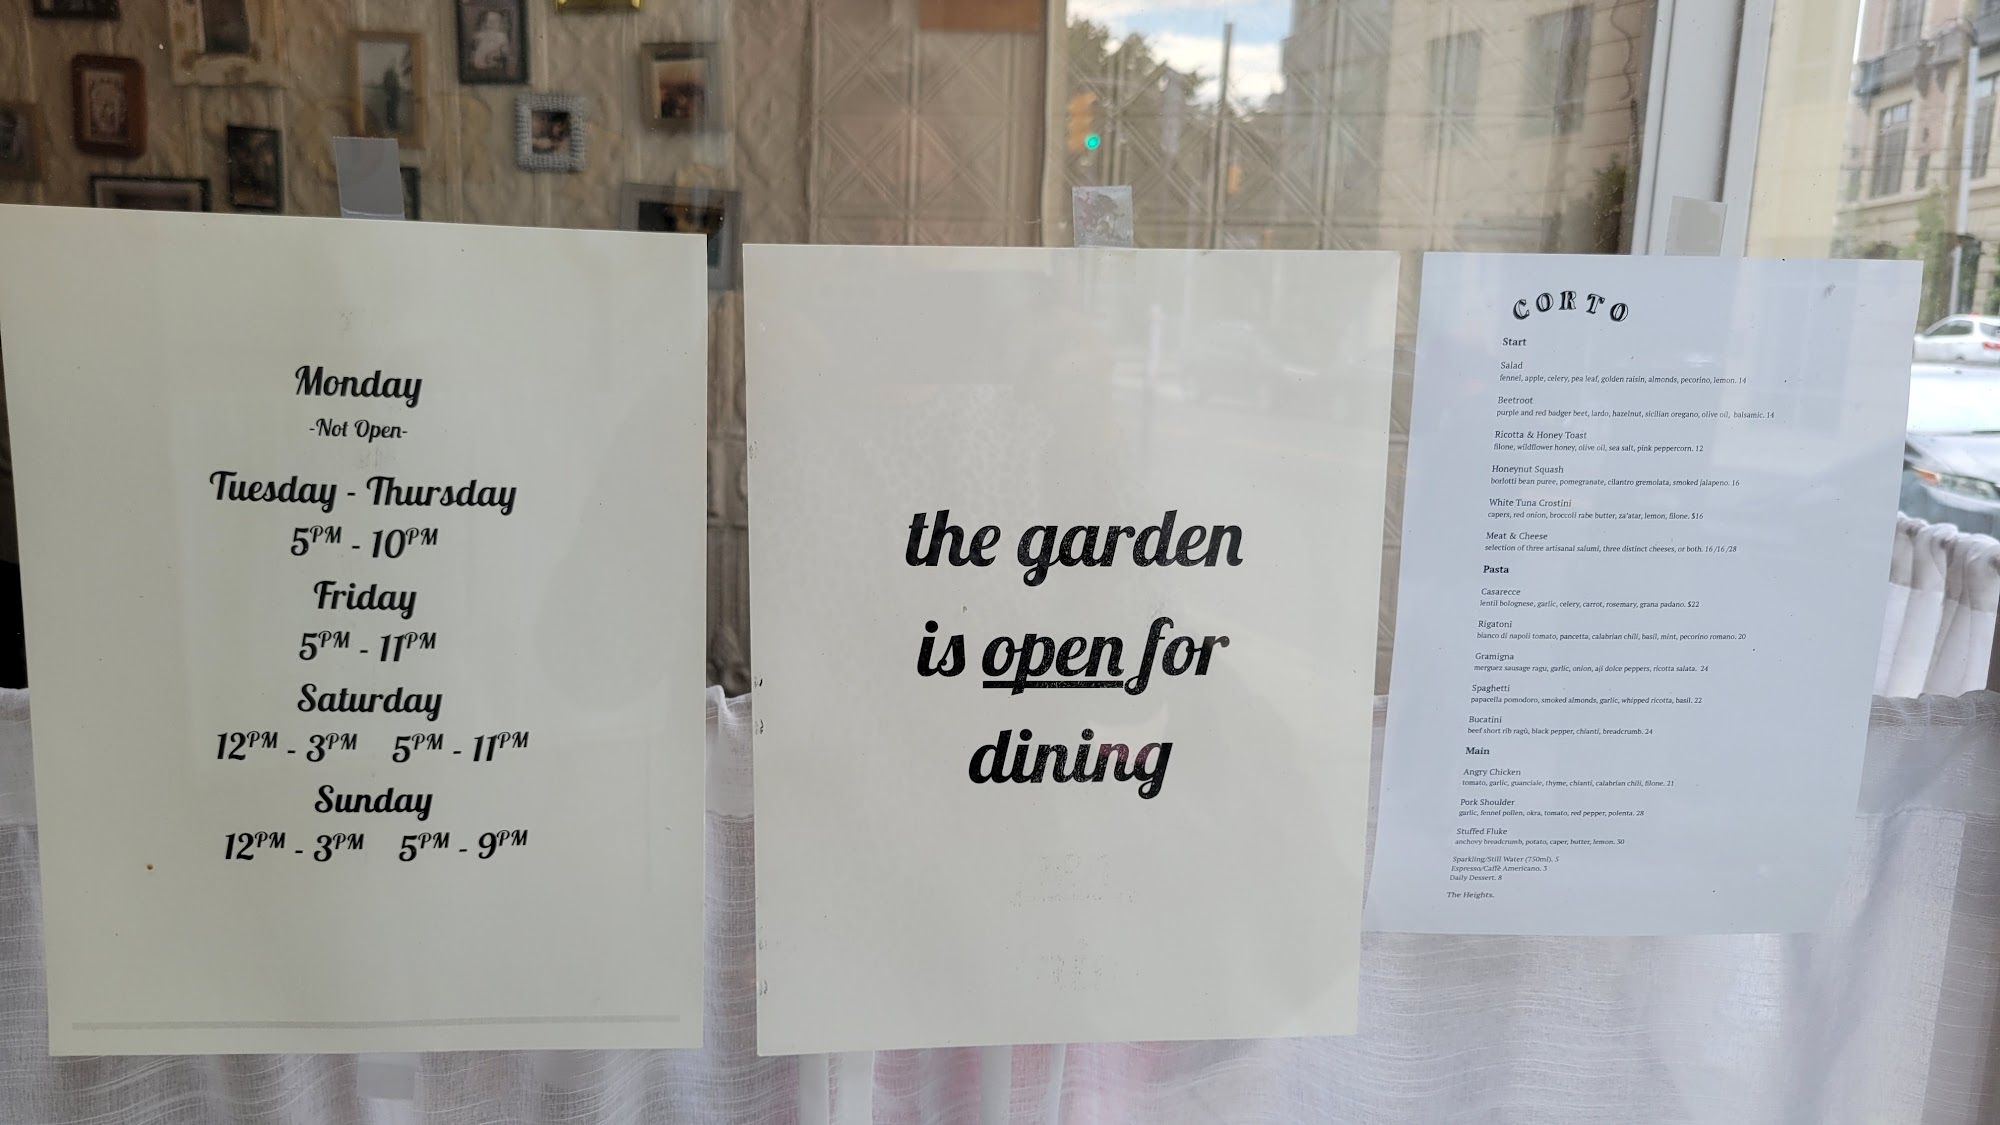 Monday
-Not Open-
Tuesday - Thursday
5PM - 10PM
Friday
5PM - 11PM
Saturday
12PM - 3PM 5PM - 11PM
Sunday
12PM - 3PM 5PM - 9PM
the garden
is open for
dining
CORTO
Start
Salad
fennel, apple, celery, pea leaf, golden raisin, almonds, pecorino, lemon. 14
Beetroot
purple and red badger beet, lardo, hazelnut, sicilian oregano, olive oil, balsamic. 14
Ricotta & Honey Toast
filone, wildflower honey, olive oil, sea salt, pink peppercorn. 12
Honeynut Squash
borlotti bean puree, pomegranate, cilantro gremolata, smoked jalapeno. 16
White Tuna Crostini
capers, red onion, broccoli rabe butter, za'atar, lemon, filone. $16
Meat & Cheese
selection of three artisanal salumi, three distinct cheeses, or both. 16/16/28
Pasta
Casarecce
lentil bolognese, garlic, celery, carrot, rosemary, grana padano. $22
Rigatoni
bianco di napoli tomato, pancetta, calabrian chili, basil, mint, pecorino romano. 20
Gramigna
merguez sausage ragu, garlic, onion, aji dolce peppers, ricotta salata. 24
Spaghetti
papacella pomodoro, smoked almonds, garlic, whipped ricotta, basil. 22
Bucatini
beef short rib ragù, black pepper, chianti, breadcrumb. 24
Main
Angry Chicken
tomato, garlic, guanciale, thyme, chianti, calabrian chili, filone. 21
Pork Shoulder
garlic, fennel pollen, okra, tomato, red pepper, polenta. 28
Stuffed Fluke
anchovy breadcrumb, potato, caper, butter, lemon. 30
Sparkling/Still Water (750ml). 5
Espresso/Caffè Americano. 3
Daily Dessert. 8
The Heights.